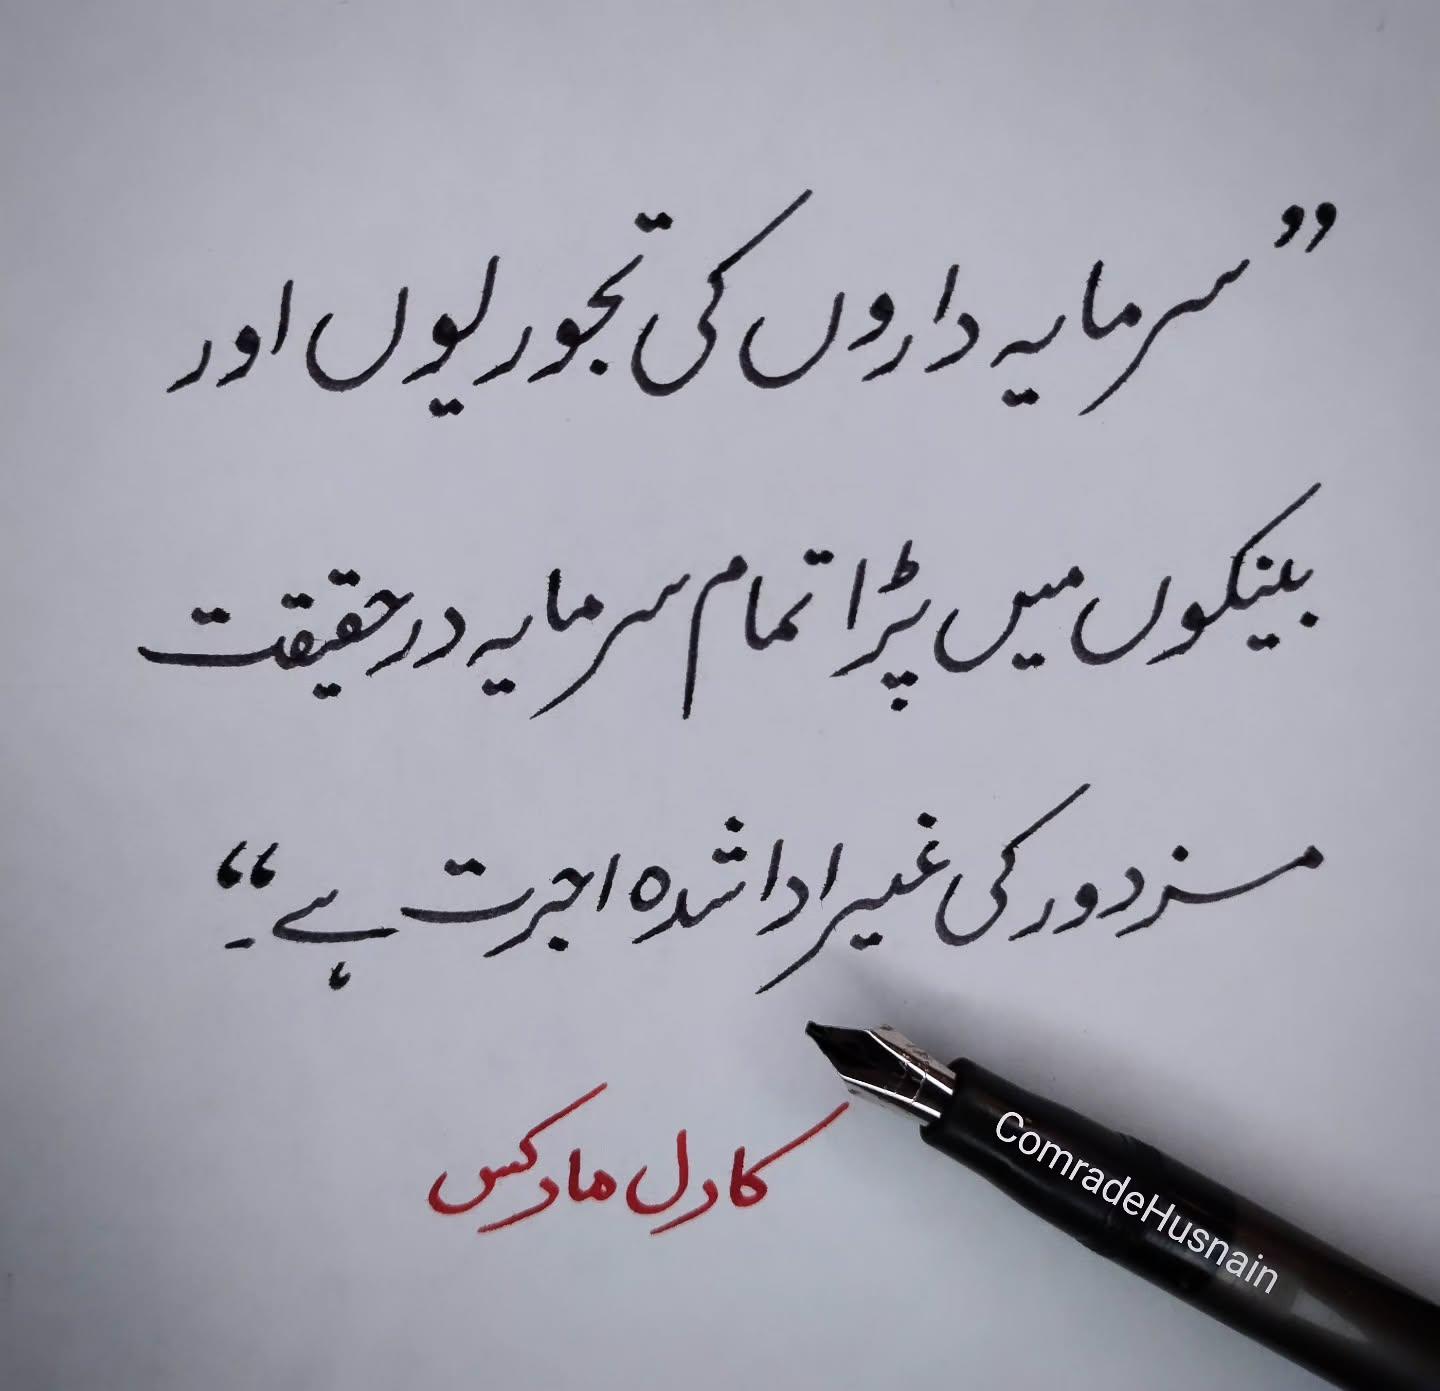 ”سرمایہ داروں کی تجوریوں اور
بینکوں میں پڑا تمام سرمایہ در حقیقت
مزدور کی غیر ادا شدہ اجرت ہے۔“
کارل مارکس
ComradeHusnain